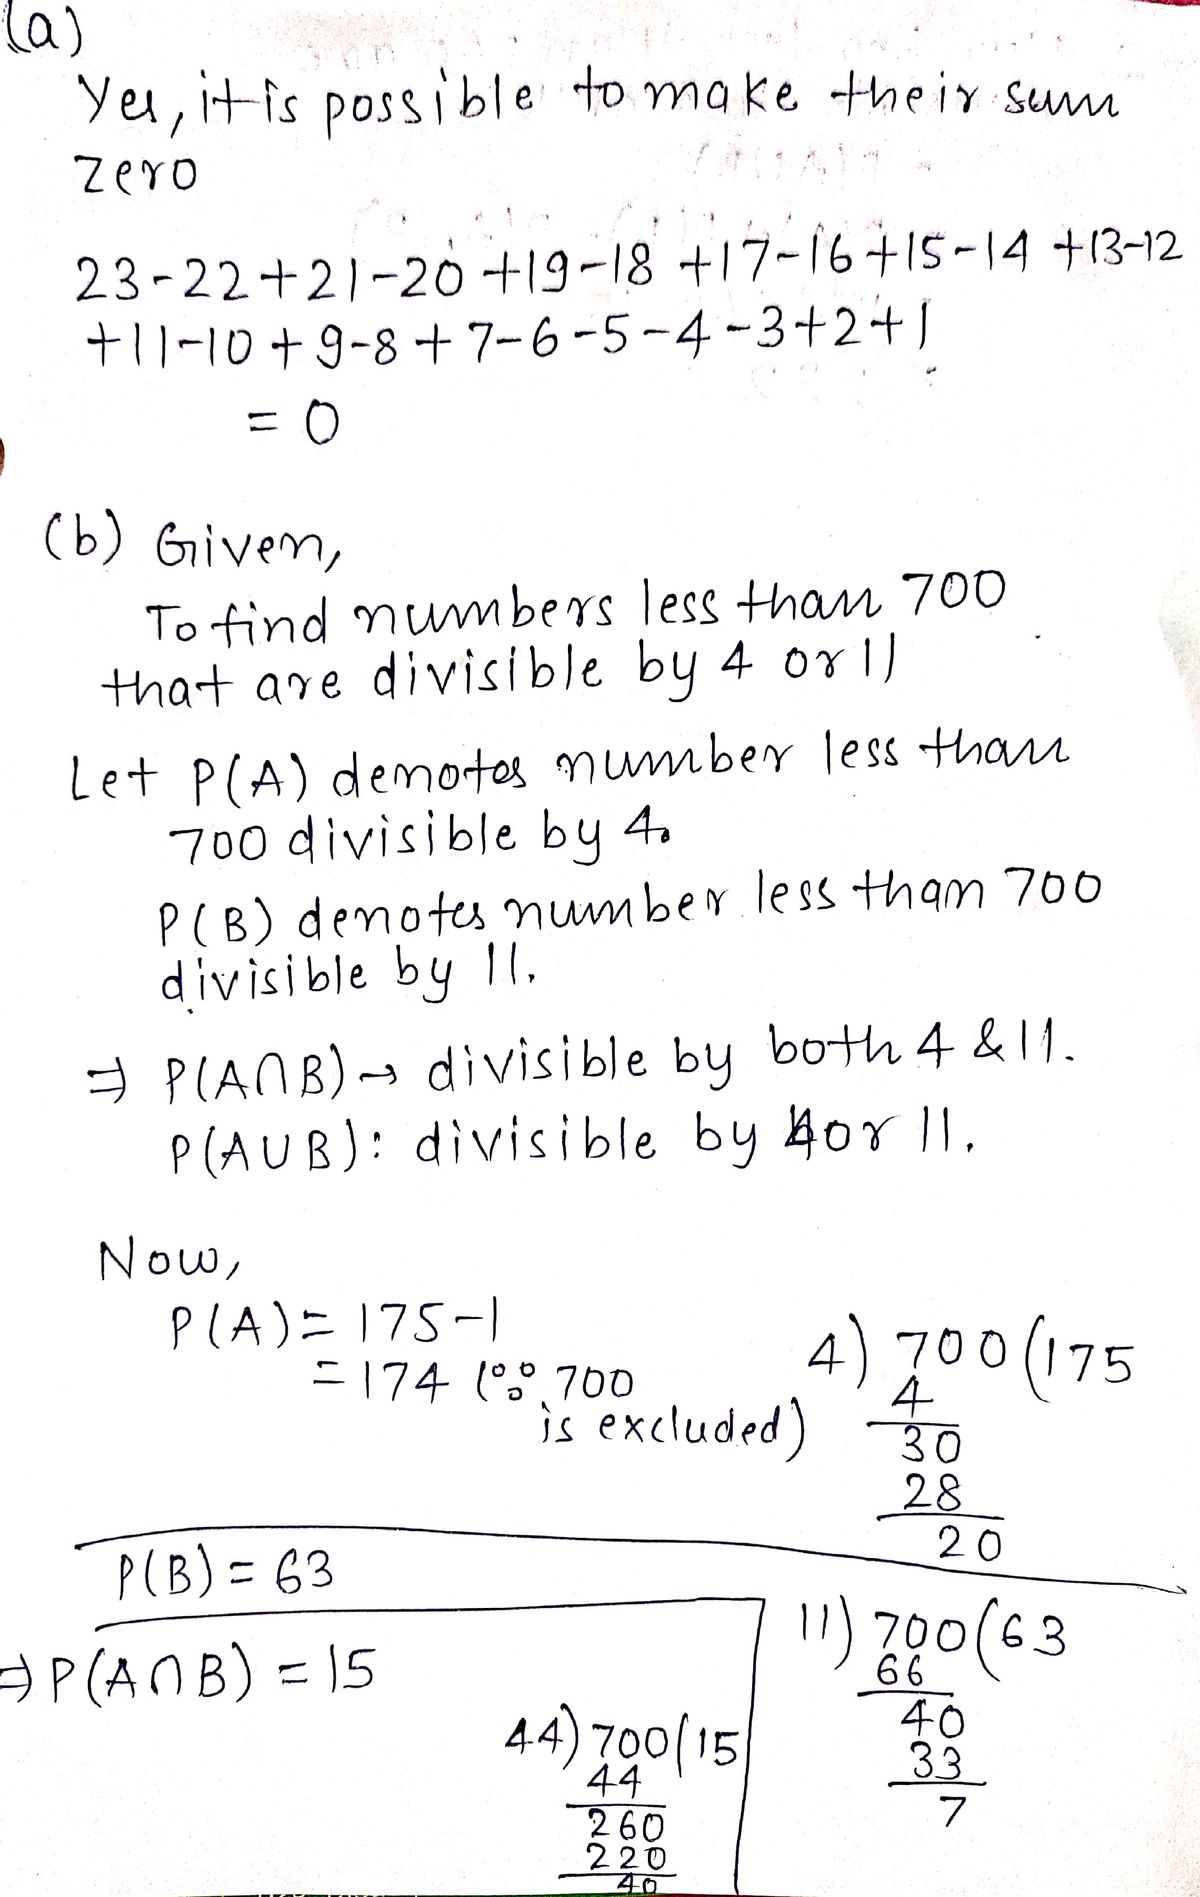 (a)
Yes, it is possible to make their sum
zero
23-22+21-20+19-18+17-16+15-14+13-12
+11-10+9-8+7-6-5-4-3+2+1
= 0
(b) Given,
To find numbers less than 700
that are divisible by 4 or 11
Let P(A) denotes number less than
700 divisible by 4.
P(B) denotes number less than 700
divisible by 11.
⇒ P(A∩B) → divisible by both 4 & 11.
P(A∪B): divisible by 4 or 11.
Now,
P(A) = 175-1
= 174 (∵ 700
is excluded)
4) 700 (175
4
30
28
20
P(B) = 63
11) 700 (63
66
40
33
7
⇒ P(A∩B) = 15
44) 700 (15
44
260
220
40